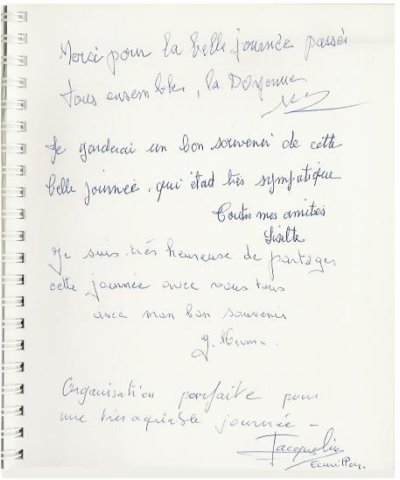 Merci pour la belle journée passée
tous ensemble, la Doyenne
Je garderai un bon souvenir de cette
belle journée, qui était très sympatique
Toutes mes amitiés
Je suis très heureuse de partager
cette journée avec vous tous
avec mon bon souvenir
Organisation parfaite pour
une très agréable journée -
Jacqueline